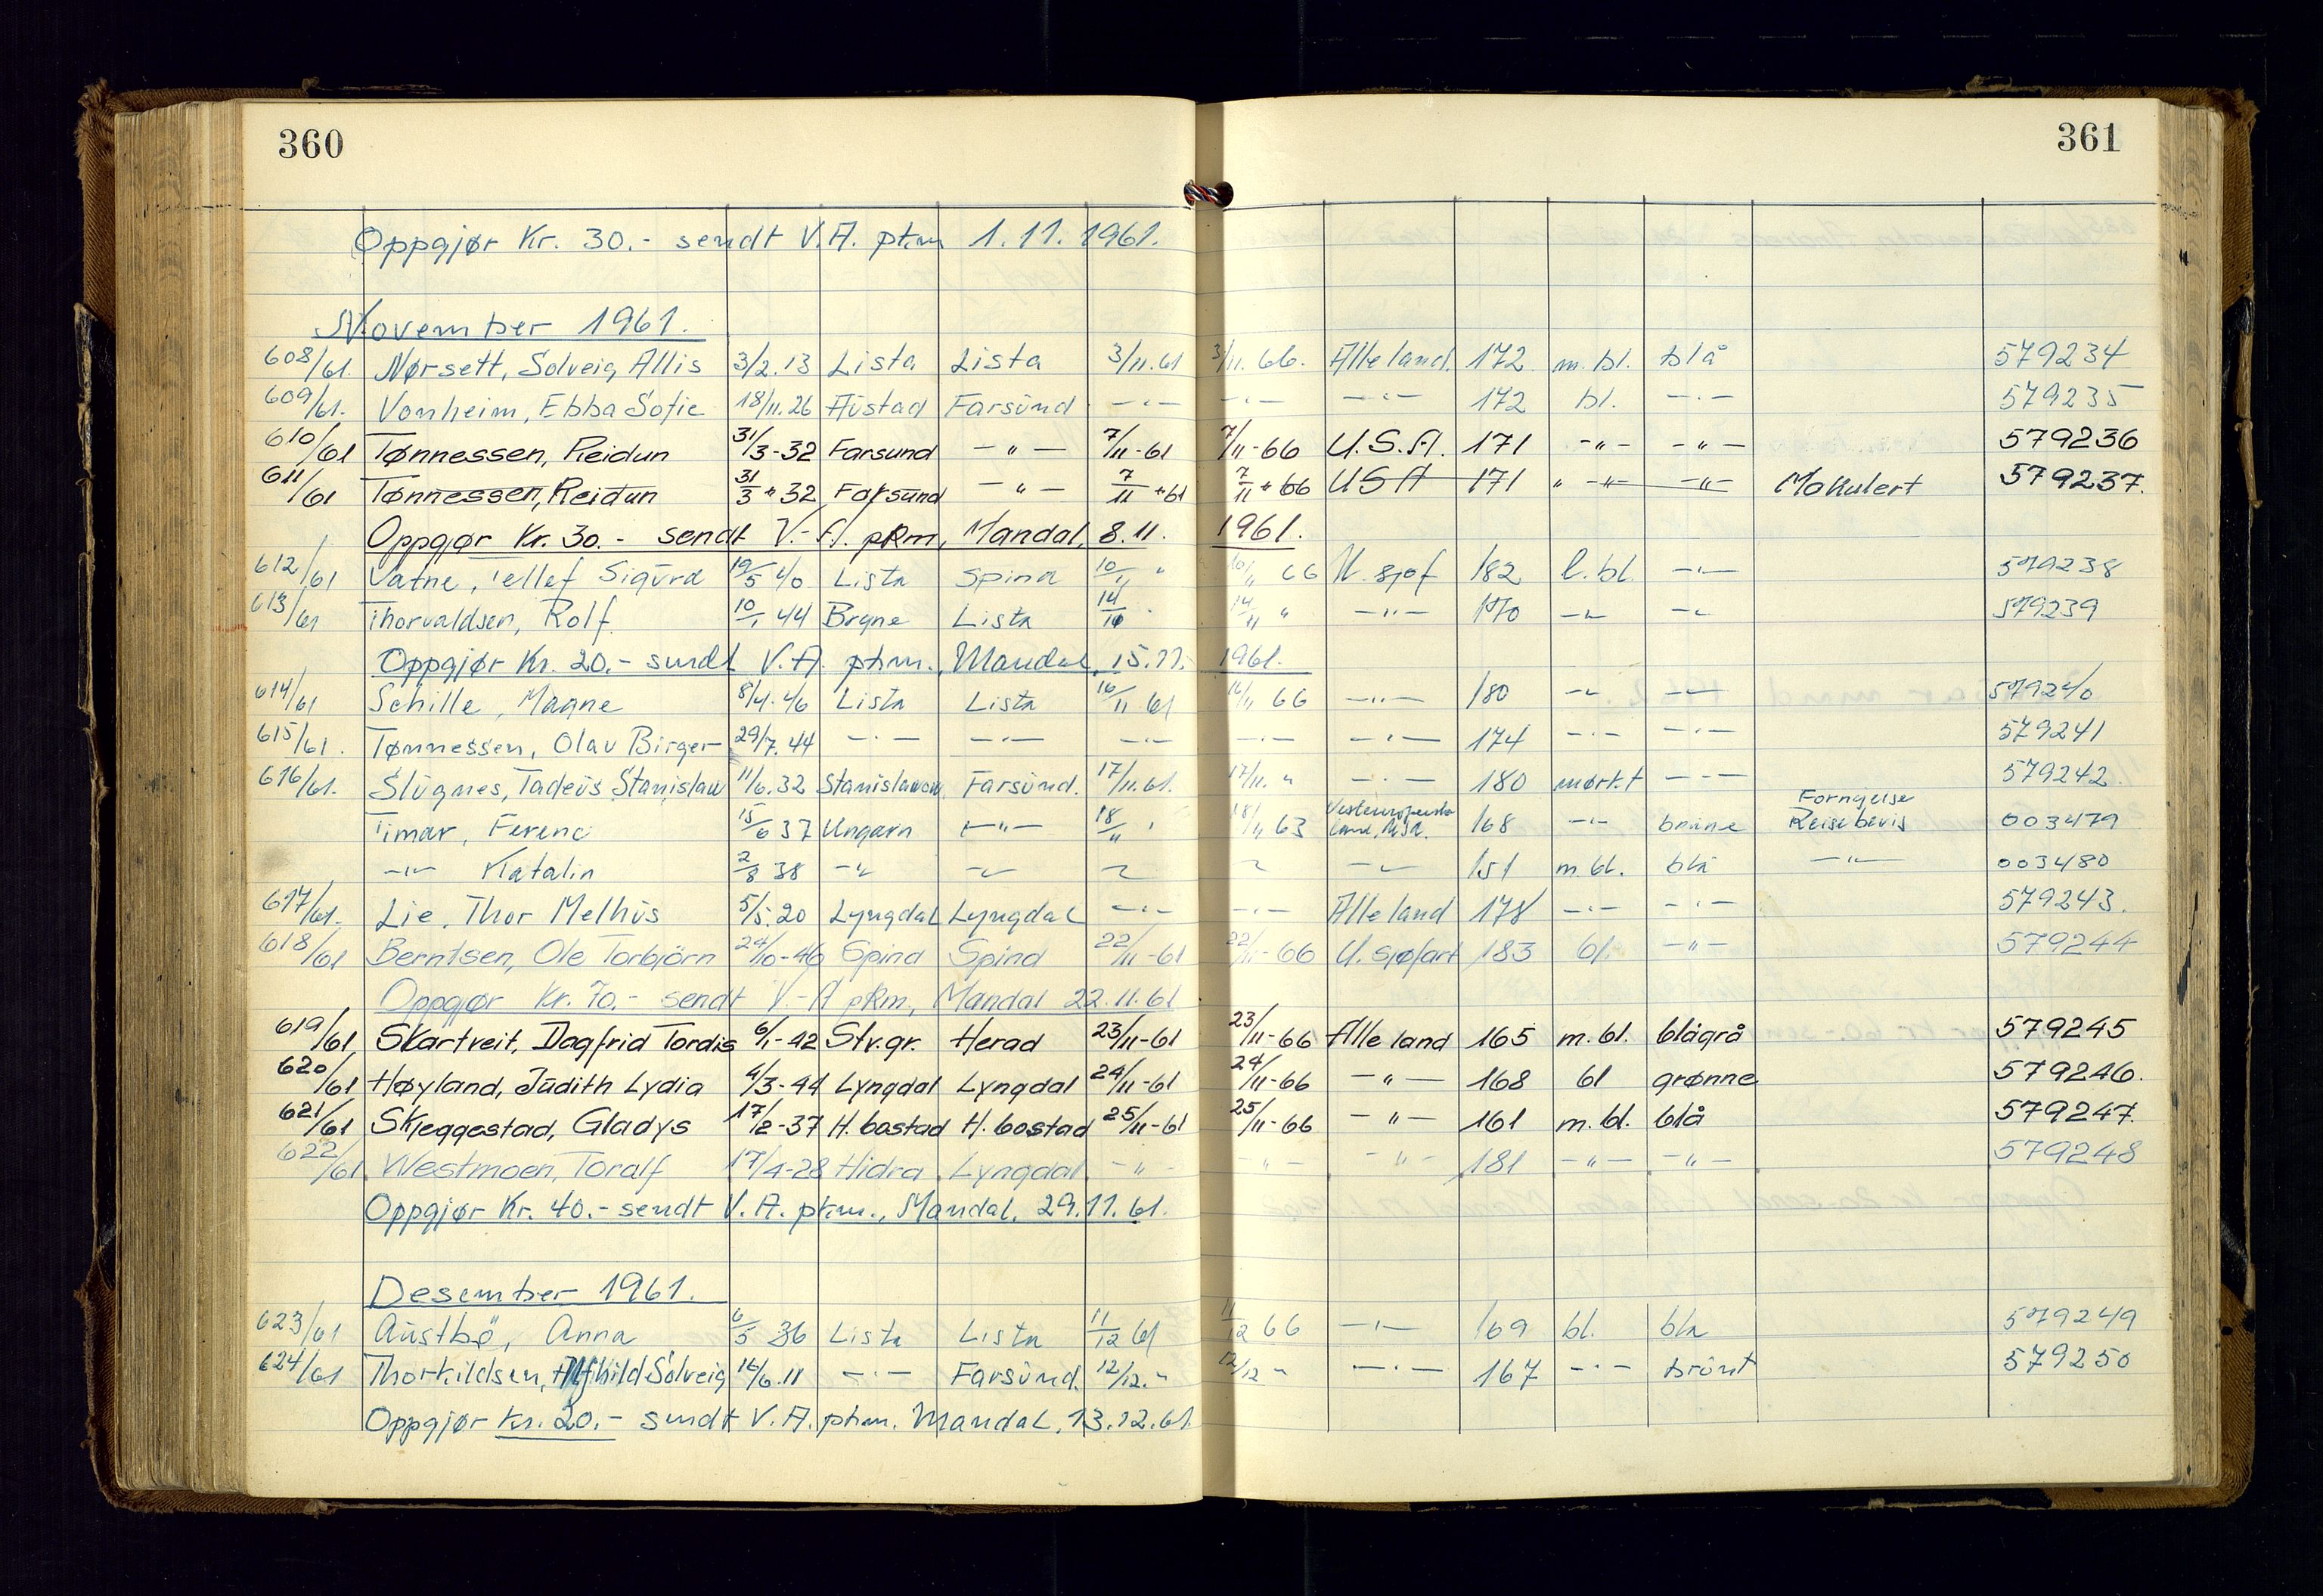 360
361
Oppgjør Kr. 30.- sendt V.A. pkm 1.11.1961.
November 1961.
608/61. Nørsett, Solveig Allis 3/2.13 Lista Lista 3/11.61 3/11.66. Alle land. 172 m. bl. blå 579234
609/61. Vonheim, Ebba Sofie 18/11.26 Aüstad Farsünd -"- -"- -"- 172 bl. -"- 579235
610/61 Tønnessen, Reidun 31/3-32 Farsund -"- 7/11-61 7/11-66 U.S.A. 171 -"- -"- 579236
611/61 Tønnessen, Reidun 31/3-32 Farsund -"- 7/11-61 7/11-66 USA 171 " -"- -"- Makulert 579237.
Oppgjør Kr. 30.- sendt V.-A. pkm, Mandal, 8.11. 1961.
612/61 Vatne, Tellef Sigürd 19/5 40 Lista Spind 10/11 " 10/11 66 U. sjøf 182 l. bl. -"- 579238
613/61 Thorvaldsen, Rolf 10/1 44 Bryne Lista 14/11 " 14/11 " -"- 170 -"- -"- 579239
Oppgjør Kr. 20.- sendt V.A. pkm., Mandal, 15.11. 1961.
614/61 Schille, Magne 8/4.46 Lista Lista 16/11 61 16/11 66 -"- 180 -"- -"- 579240
615/61. Tønnessen, Olav Birger 29/7.44 -"- -"- -"- -"- -"- 174 -"- -"- 579241
616/61. Slügnes, Tadeüs Stanislaw 11/6.32 Stanislawow Farsünd. 17/11.61. 17/11. " -"- 180 mørkt -"- 579242.
Timar, Ferenc 15/6 37 Ungarn -"- 18/11 " 18/11 63 Vesteuropeiske land, USA. 168 -"- brüne Fornyelse Reisebevis 003479
-"- Katalin 2/8 38 -"- -"- -"- -"- -"- 151 m. bl. blå -"- 003480
617/61. Lie, Thor Melhüs 5/5.20 Lyngdal Lyngdal -"- -"- Alle land 178 -"- -"- 579243.
618/61 Berntsen, Ole Torbjörn 24/10-46 Spind Spind 22/11-61 22/11-66 U. sjøfart 183 bl. -"- 579244
Oppgjør Kr. 70.- sendt V.-A pkm, Mandal 22.11.61
619/61 Skartveit, Dagfrid Tordis 6/1-42 Stv.gr. Herad 23/11-61 23/11-66 Alle land 165 m. bl. blågrå 579245
620/61 Høyland, Jüdith Lydia 4/3-44 Lyngdal Lyngdal 24/11-61 24/11-66 -"- 168 bl grønne 579246.
621/61 Skjeggestad, Gladys 17/2-37 H.bostad H.bostad 25/11-61 25/11-66 -"- 161 m. bl. blå 579247.
622/61 Westmoen, Toralf 17/4-28 Hidra Lyngdal -"- -"- -"- 181 -"- -"- 579248
Oppgjør Kr. 40.- sendt V.A. pkm., Mandal. 29.11.61.
Desember 1961.
623/61 Aüstbö, Anna 6/5 36 Lista Lista 11/12 61 11/12 66 -"- 169 bl. blå 579249
624/61 Thorkildsen, Alfhild Solveig 16/6.11 -"- Farsünd. 12/12. " 12/12 " -"- 167 -"- brünt 579250
Oppgjør Kr. 20.- sendt V.A. pkm. Mandal, 13.12.61.